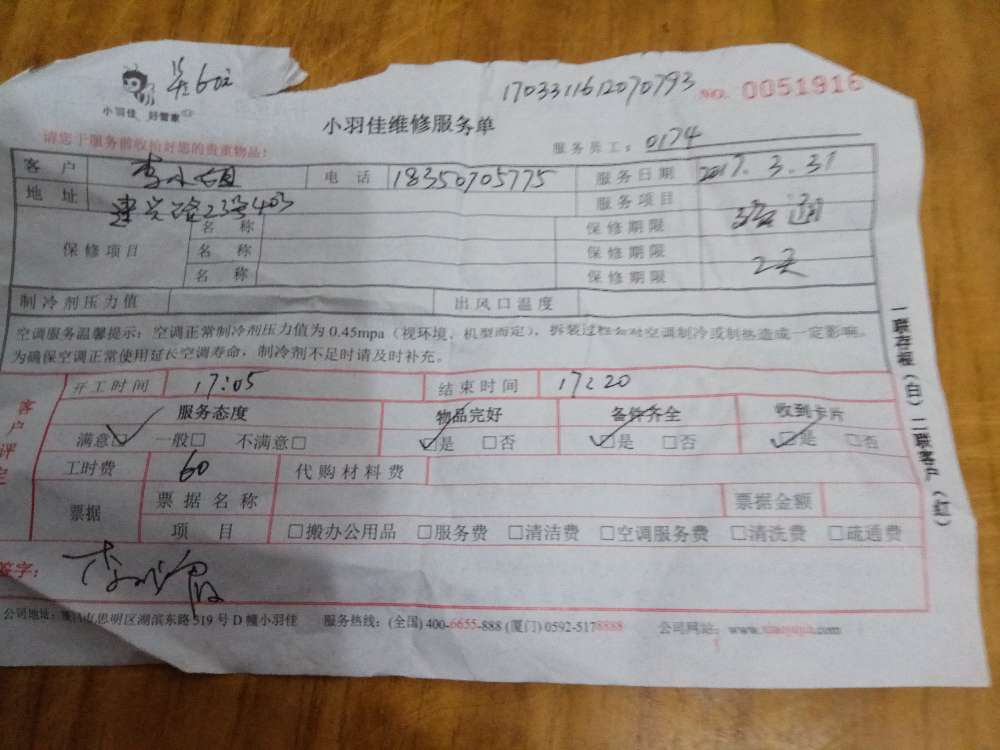 60元
1703311612070793 NO. 0051916
小羽佳 好管家
小羽佳维修服务单
请您于服务前收拾好您的贵重物品!
服务员工: 0174
客户 李小姐 电话 18350705775 服务日期 2017.3.31
地址 建兴路23号403 服务项目 疏通
名称 保修期限
保修项目 名称 保修期限 2天
名称 保修期限
制冷剂压力值 出风口温度
空调服务温馨提示: 空调正常制冷剂压力值为 0.45mpa (视环境、机型而定), 拆装过程会对空调制冷或制热造成一定影响。
为确保空调正常使用延长空调寿命, 制冷剂不足时请及时补充。
开工时间 17:05 结束时间 17:20
客户评定
服务态度 物品完好 备件齐全 收到卡片
满意☑ 一般□ 不满意□ ☑是 □否 ☑是 □否 ☑是 □否
工时费 60 代购材料费
票据 票据名称 票据金额
项目 □搬办公用品 □服务费 □清洁费 □空调服务费 □清洗费 □疏通费
签字:
公司地址: 厦门市思明区湖滨东路319号D幢小羽佳 服务热线: (全国) 400-6655-888 (厦门) 0592-5178888 公司网站: www.xiaoyujia.com
一联存根(白) 二联客户(红)